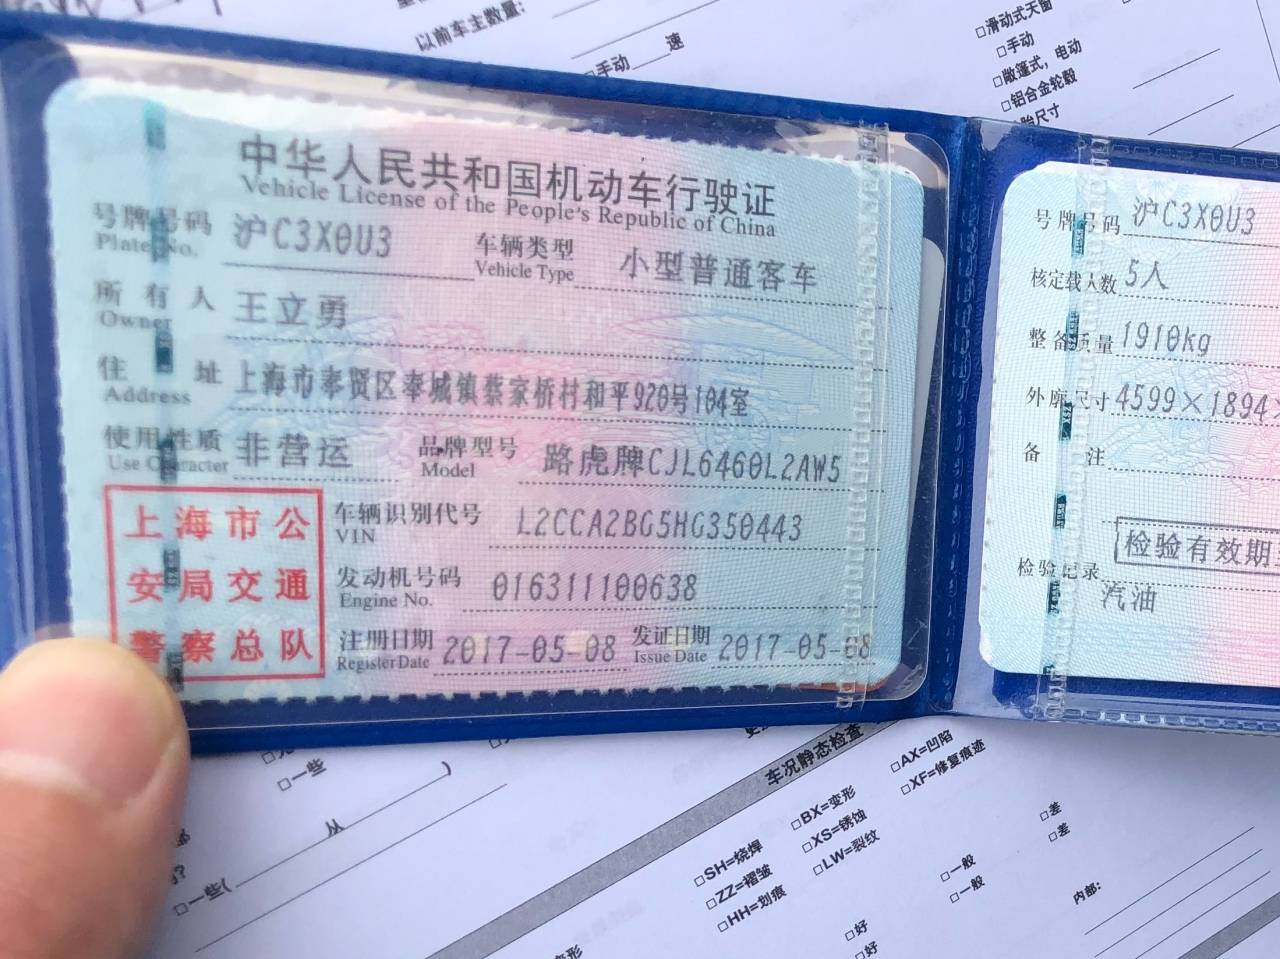 以前车主数量:
手动 速
□滑动式天窗
□手动
□敞篷式，电动
□铝合金轮毂
胎尺寸
中华人民共和国机动车行驶证
Vehicle License of the People's Republic of China
号牌号码 沪C3X0U3 车辆类型 小型普通客车
Plate No. Vehicle Type
所有人 王立勇
Owner
住址 上海市奉贤区奉城镇蔡家桥村和平920号104室
Address
使用性质 非营运 品牌型号 路虎牌CJL6460L2AW5
Use Character Model
上海市公
安局交通
警察总队
车辆识别代号 L2CCA2BG5HG350443
VIN
发动机号码 016311100638
Engine No.
注册日期 2017-05-08 发证日期 2017-05-08
Register Date Issue Date
号牌号码 沪C3X0U3
核定载人数 5人
整备质量 1910kg
外廓尺寸 4599×1894×
备注
检验有效期
检验记录
汽油
□一些
从
□一些(
车况静态检查
□AX=凹陷
□XF=修复痕迹
□BX=变形
□XS=锈蚀
□LW=裂纹
□SH=烧焊
□ZZ=褶皱
□HH=划痕
□差
□差
□一般
□一般
□好
□好
内部:
变形